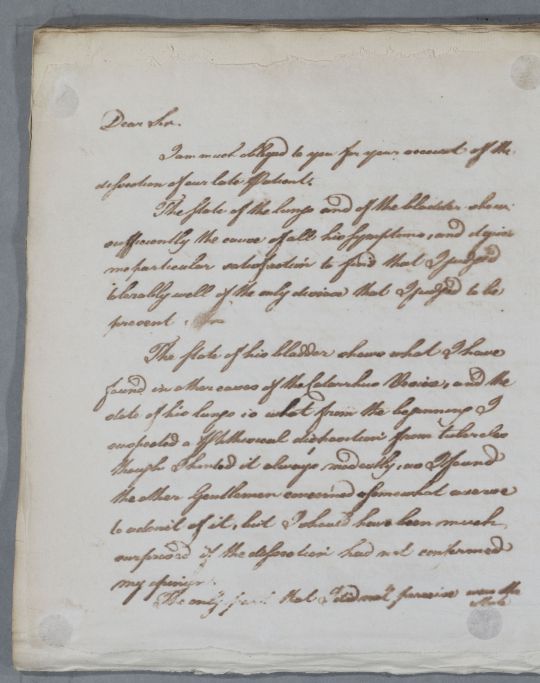 Dear Sir.
I am much obliged to you for your account off the
dissection of our late Patient.
The State of the lungs and of the bladder shew
sufficiently the cause of all his symptoms, and it gives
me particular satisfaction to find that I judged
tolerably well of the only disease that I judged to be
present.
The State of his bladder shews what I have
found in other cases of the Catarrhus Vesicæ, and the
state of his lungs is what from the beginning I
suspected a Phthisical disposition from tubercles
though I hinted it always modestly, as I found
the other Gentlemen concerned somewhat averse
to admit of it, but I should have been much
surprised if the dissection had not confirmed
my opinion.
The only part that I did not perceive was the